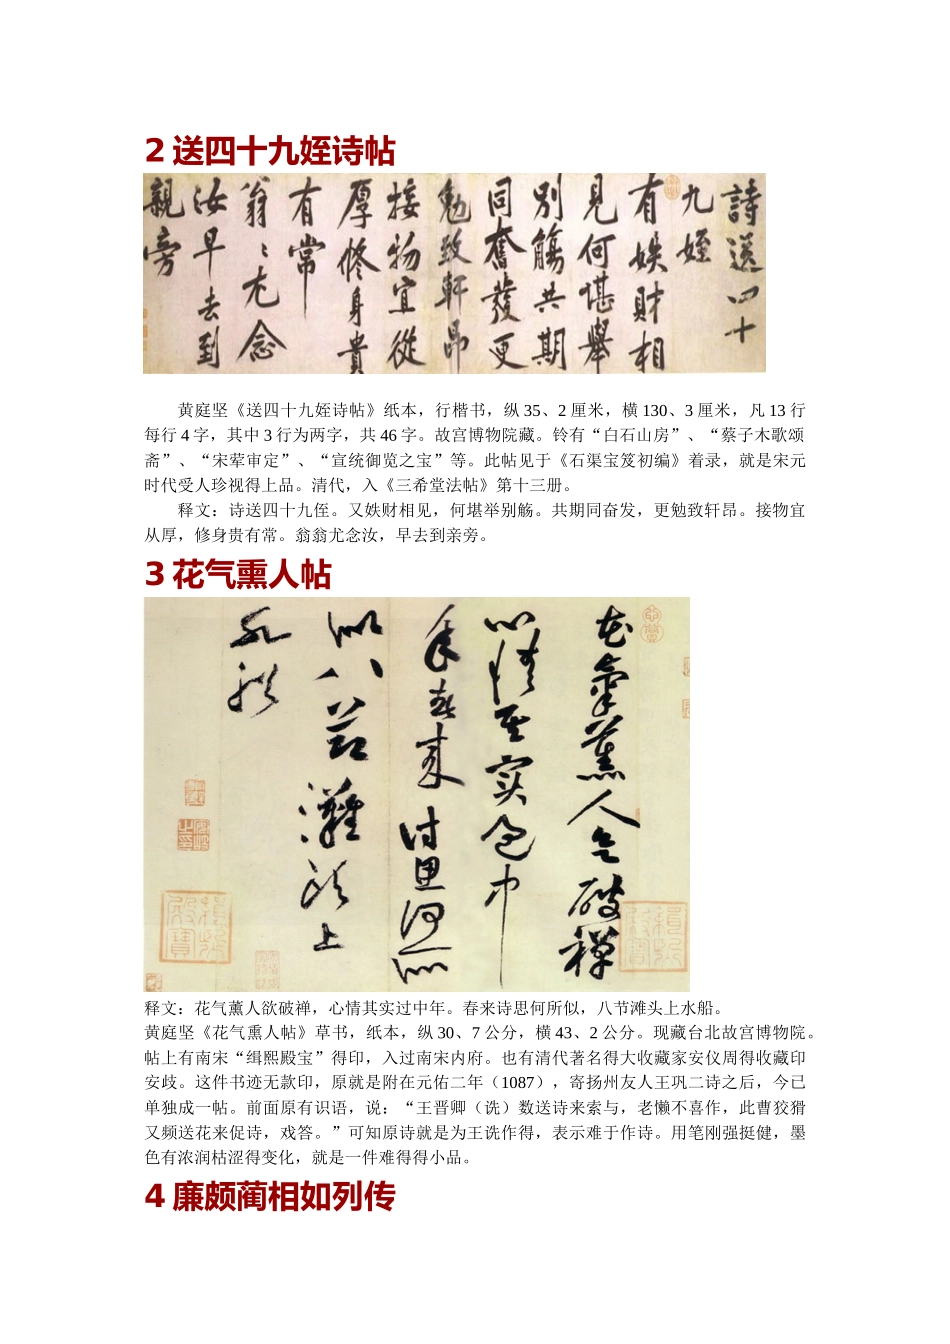 2 送四十九姪诗帖
詩送四十
九姪
有姎財相
見何堪舉
別觴共期
同奮發更
勉致軒昂
接物宜從
厚修身貴
有常
翁翁尤念
汝早去到
親旁
黄庭坚《送四十九姪诗帖》纸本，行楷书，纵 35、2 厘米，横 130、3 厘米，凡 13 行
每行 4 字，其中 3 行为两字，共 46 字。故宫博物院藏。铃有“白石山房”、“蔡子木歌颂
斋”、“宋荤审定”、“宣统御览之宝”等。此帖见于《石渠宝笈初编》着录，就是宋元
时代受人珍视得上品。清代，入《三希堂法帖》第十三册。
释文：诗送四十九侄。又妷财相见，何堪举别觞。共期同奋发，更勉致轩昂。接物宜
从厚，修身贵有常。翁翁尤念汝，早去到亲旁。
3 花气熏人帖
花氣薰人欲破禪
心情其实過中
年春来詩思何所
似八節灘頭上
水船
释文：花气薰人欲破禅，心情其实过中年。春来诗思何所似，八节滩头上水船。
黄庭坚《花气熏人帖》草书，纸本，纵 30、7 公分，横 43、2 公分。现藏台北故宫博物院。
帖上有南宋“缉熙殿宝”得印，入过南宋内府。也有清代著名得大收藏家安仪周得收藏印
安歧。这件书迹无款印，原就是附在元佑二年（1087），寄扬州友人王巩二诗之后，今已
单独成一帖。前面原有识语，说：“王晋卿（诜）数送诗来索与，老懒不喜作，此曹狡猾
又频送花来促诗，戏答。”可知原诗就是为王诜作得，表示难于作诗。用笔刚强挺健，墨
色有浓润枯涩得变化，就是一件难得得小品。
4 廉颇蔺相如列传